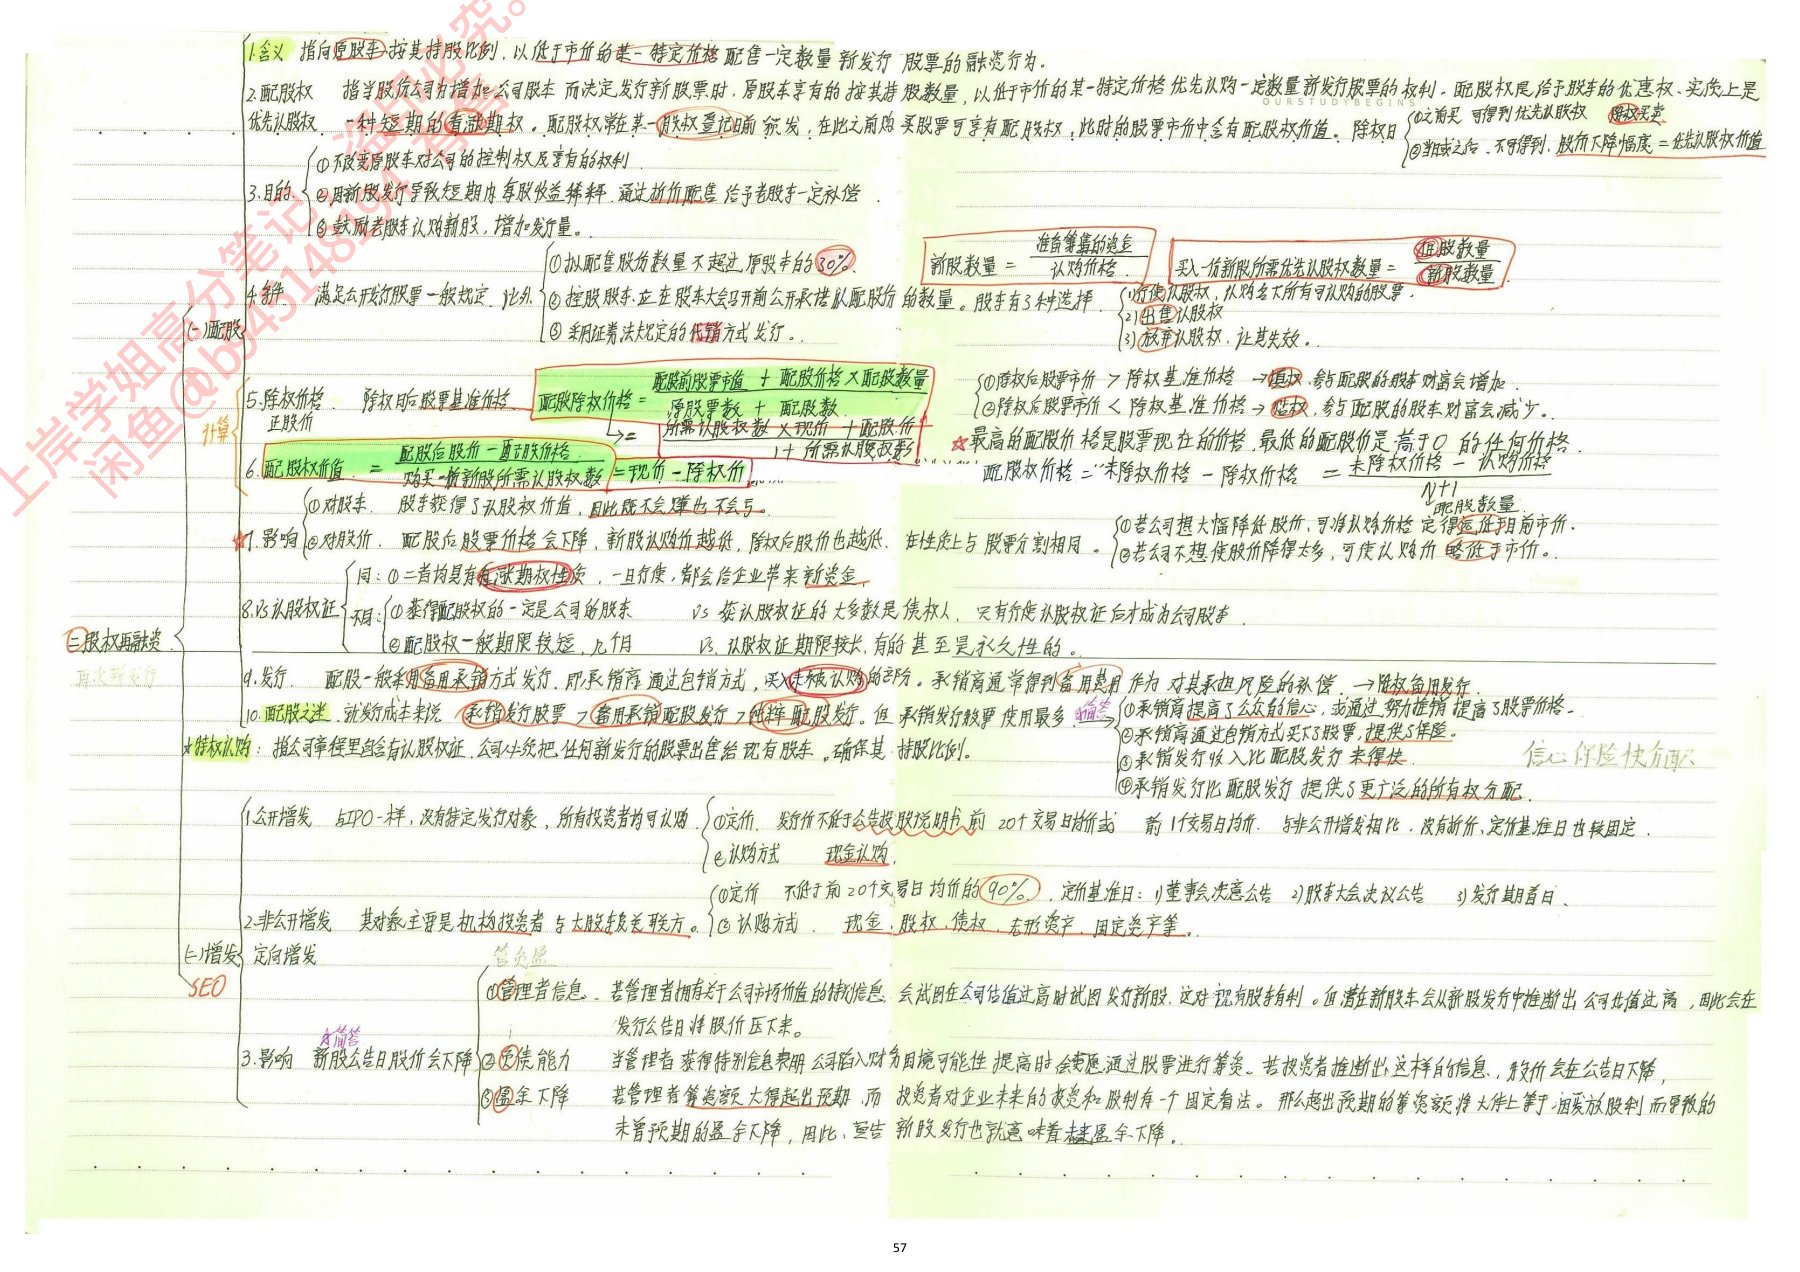 1.含义 指向原股东按其持股比例，以低于市价的某一特定价格配售一定数量新发行股票的融资行为。
2.配股权 指当股份公司为增加公司股本而决定发行新股票时，原股东享有的按其持股数量，以低于市价的某一特定价格优先认购一定数量新发行股票的权利。配股权是给于股东的优惠权、实质上是
OURSTUDYBEGINS
优先认股权 一种短期的看涨期权。配股权常在某一股权登记日前颁发，在此之前购买股票可享有配股权，此时的股票市价中含有配股权价值。除权日
①之前买 可得到优先认股权
②当日或之后 不可得到，股价下降幅度=优先认股权价值
3.目的
①不改变原股东对公司的控制权及享有的权利
②因新股发行导致短期内每股收益稀释 通过折价配售给予老股东一定补偿
③鼓励老股东认购新股，增加发行量。
新股数量 = 准备筹集的资金 / 认购价格
买入一份新股所需优先认股权数量 = 旧股数量 / 新股数量
4.条件 满足公开发行股票一般规定，此外
①拟配售股份数量不超过原股本的30%
②控股股东应在股东大会召开前公开承诺认配股份的数量。股东有3种选择
③采用证券法规定的代销方式发行。
1)行使认股权，认购名下所有可认购的股票。
2)出售认股权
3)放弃认股权，让其失效。
(一)配股
计算
5.除权价格 除权日后股票基准价格
正股价
配股除权价格= 配股前股票市值 + 配股价格×配股数量 / 原股票数 + 配股数
= 所需认股权数×现价 + 配股价 / 1+所需认股权数
①除权后股票市价 > 除权基准价格 → 填权 参与配股的股东财富会增加
②除权后股票市价 < 除权基准价格 → 贴权 参与配股的股东财富会减少。
☆最高的配股价格是股票现在的价格，最低的配股价是高于0的任何价格
6.配股权价值 = 配股后股价－配股价格 / 购买一份新股所需认股权数 = 现价－除权价
配股权价格=未除权价格－除权价格 = 未除权价格－认购价格 / N+1
配股数量
☆7.影响
①对股东 股东获得了认股权价值，因此既不会赚也不会亏。
②对股价 配股后股票价格会下降，新股认购价越低，除权后股价也越低 在性质上与股票分割相同。
①若公司想大幅降低股价，可将认购价格定得远低于目前市价。
②若公司不想使股价降得太多，可使认购价略低于市价。
8.vs认股权证
同：①二者均具有看涨期权性质，一旦行使，都会给企业带来新资金
不同：①获得配股权的一定是公司的股东 vs 获认股权证的大多数是债权人，只有行使认股权证后才成为公司股东
②配股权一般期限较短，几个月 vs 认股权证期限较长，有的甚至是永久性的。
三股权再融资
再次新发行
9.发行 配股一般采用备用承销方式发行，即承销商通过包销方式，买入未被认购的部分。承销商通常得到备用费用作为对其承担风险的补偿 →附权备用发行
10.配股之迷 就发行成本来说 承销发行股票>备用承销配股发行>纯粹配股发行。但承销发行股票使用最多 简答
①承销商提高了公众的信心，或通过努力推销提高了股票价格。
②承销商通过包销方式买下了股票，提供了保险。
③承销发行收入比配股发行来得快
④承销发行比配股发行提供了更广泛的所有权分配
信心保险快分配
☆特权认购：指公司章程里包含有认股权证，公司必须把任何新发行的股票出售给现有股东。确保其持股比例。
1.公开增发 与IPO一样，没有特定发行对象，所有投资者均可认购
①定价 发行价不低于公告招股说明书前20个交易日均价或 前1个交易日均价 与非公开增发相比，没有折价，定价基准日也较固定
②认购方式 现金认购
2.非公开增发 其对象主要是机构投资者与大股东及关联方。
①定价 不低于前20个交易日均价的90%，定价基准日：1)董事会决意公告 2)股东大会决议公告 3)发行期首日
②认购方式 现金、股权、债权、无形资产、固定资产等。
(二)增发 定向增发
SEO
管负盈
①管理者信息 若管理者拥有关于公司市场价值的特别信息 会试图在公司估值过高时试图发行新股，这对现有股东有利。但潜在新股东会从新股发行中推断出公司估值过高，因此会在
发行公告日将股价压下来。
☆简答
3.影响 新股公告日股价会下降
②负债能力 当管理者获得特别信息表明公司陷入财务困境可能性提高时会更愿通过股票进行筹资。若投资者推断出这样的信息，股价会在公告日下降，
③盈余下降 若管理者筹资额大得超出预期，而投资者对企业未来的投资和股利有一个固定看法。那么超出预期的筹资额将大体上等于因发放股利而导致的
未曾预期的盈余下降，因此，宣告新股发行也就意味着未来盈余下降。
上岸学姐高分笔记，盗印必究。
57